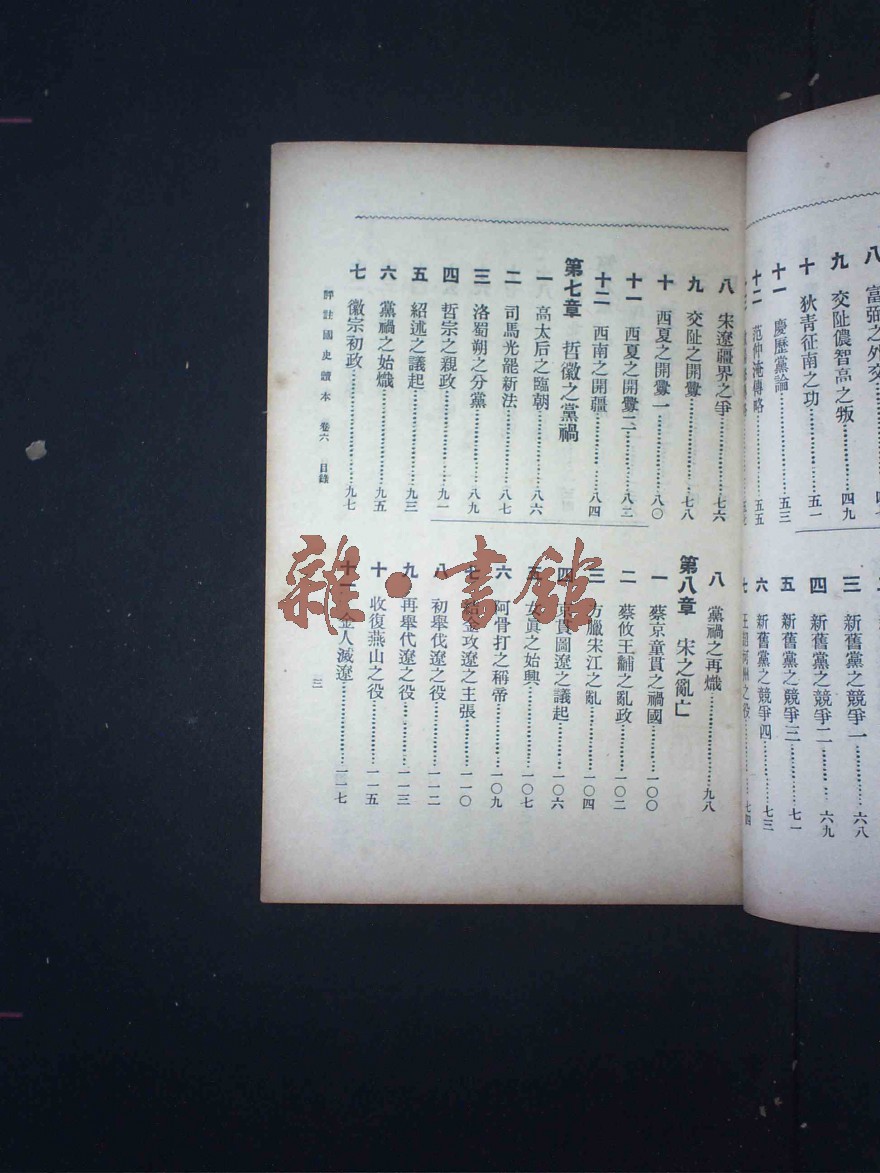 八 富弼之外交
九 交阯儂智高之叛……四九
十 狄青征南之功……五一
十一 慶歷黨論……五三
十二 范仲淹傳略……五五
三 新舊黨之競爭一……六八
四 新舊黨之競爭二……六九
五 新舊黨之競爭三……七一
六 新舊黨之競爭四……七三
八 宋遼疆界之爭……七六
九 交阯之開釁……七八
十 西夏之開釁一……八〇
十一 西夏之開釁二……八二
十二 西南之開疆……八四
第七章 哲徽之黨禍
一 高太后之臨朝……八六
二 司馬光罷新法……八七
三 洛蜀朔之分黨……八九
四 哲宗之親政……九一
五 紹述之議起……九三
六 黨禍之始熾……九五
七 徽宗初政……九七
八 黨禍之再熾……九八
第八章 宋之亂亡
一 蔡京童貫之禍國……一〇〇
二 蔡攸王黼之亂政……一〇二
三 方臘宋江之亂……一〇四
四 京貫圖遼之議起……一〇六
五 女真之始興……一〇七
六 阿骨打之稱帝……一〇九
七 結金攻遼之主張……一一〇
八 初舉伐遼之役……一一二
九 再舉伐遼之役……一一三
十 收復燕山之役……一一五
十一 金人滅遼……一一七
評註國史讀本 卷六 目錄
三
雜·書館